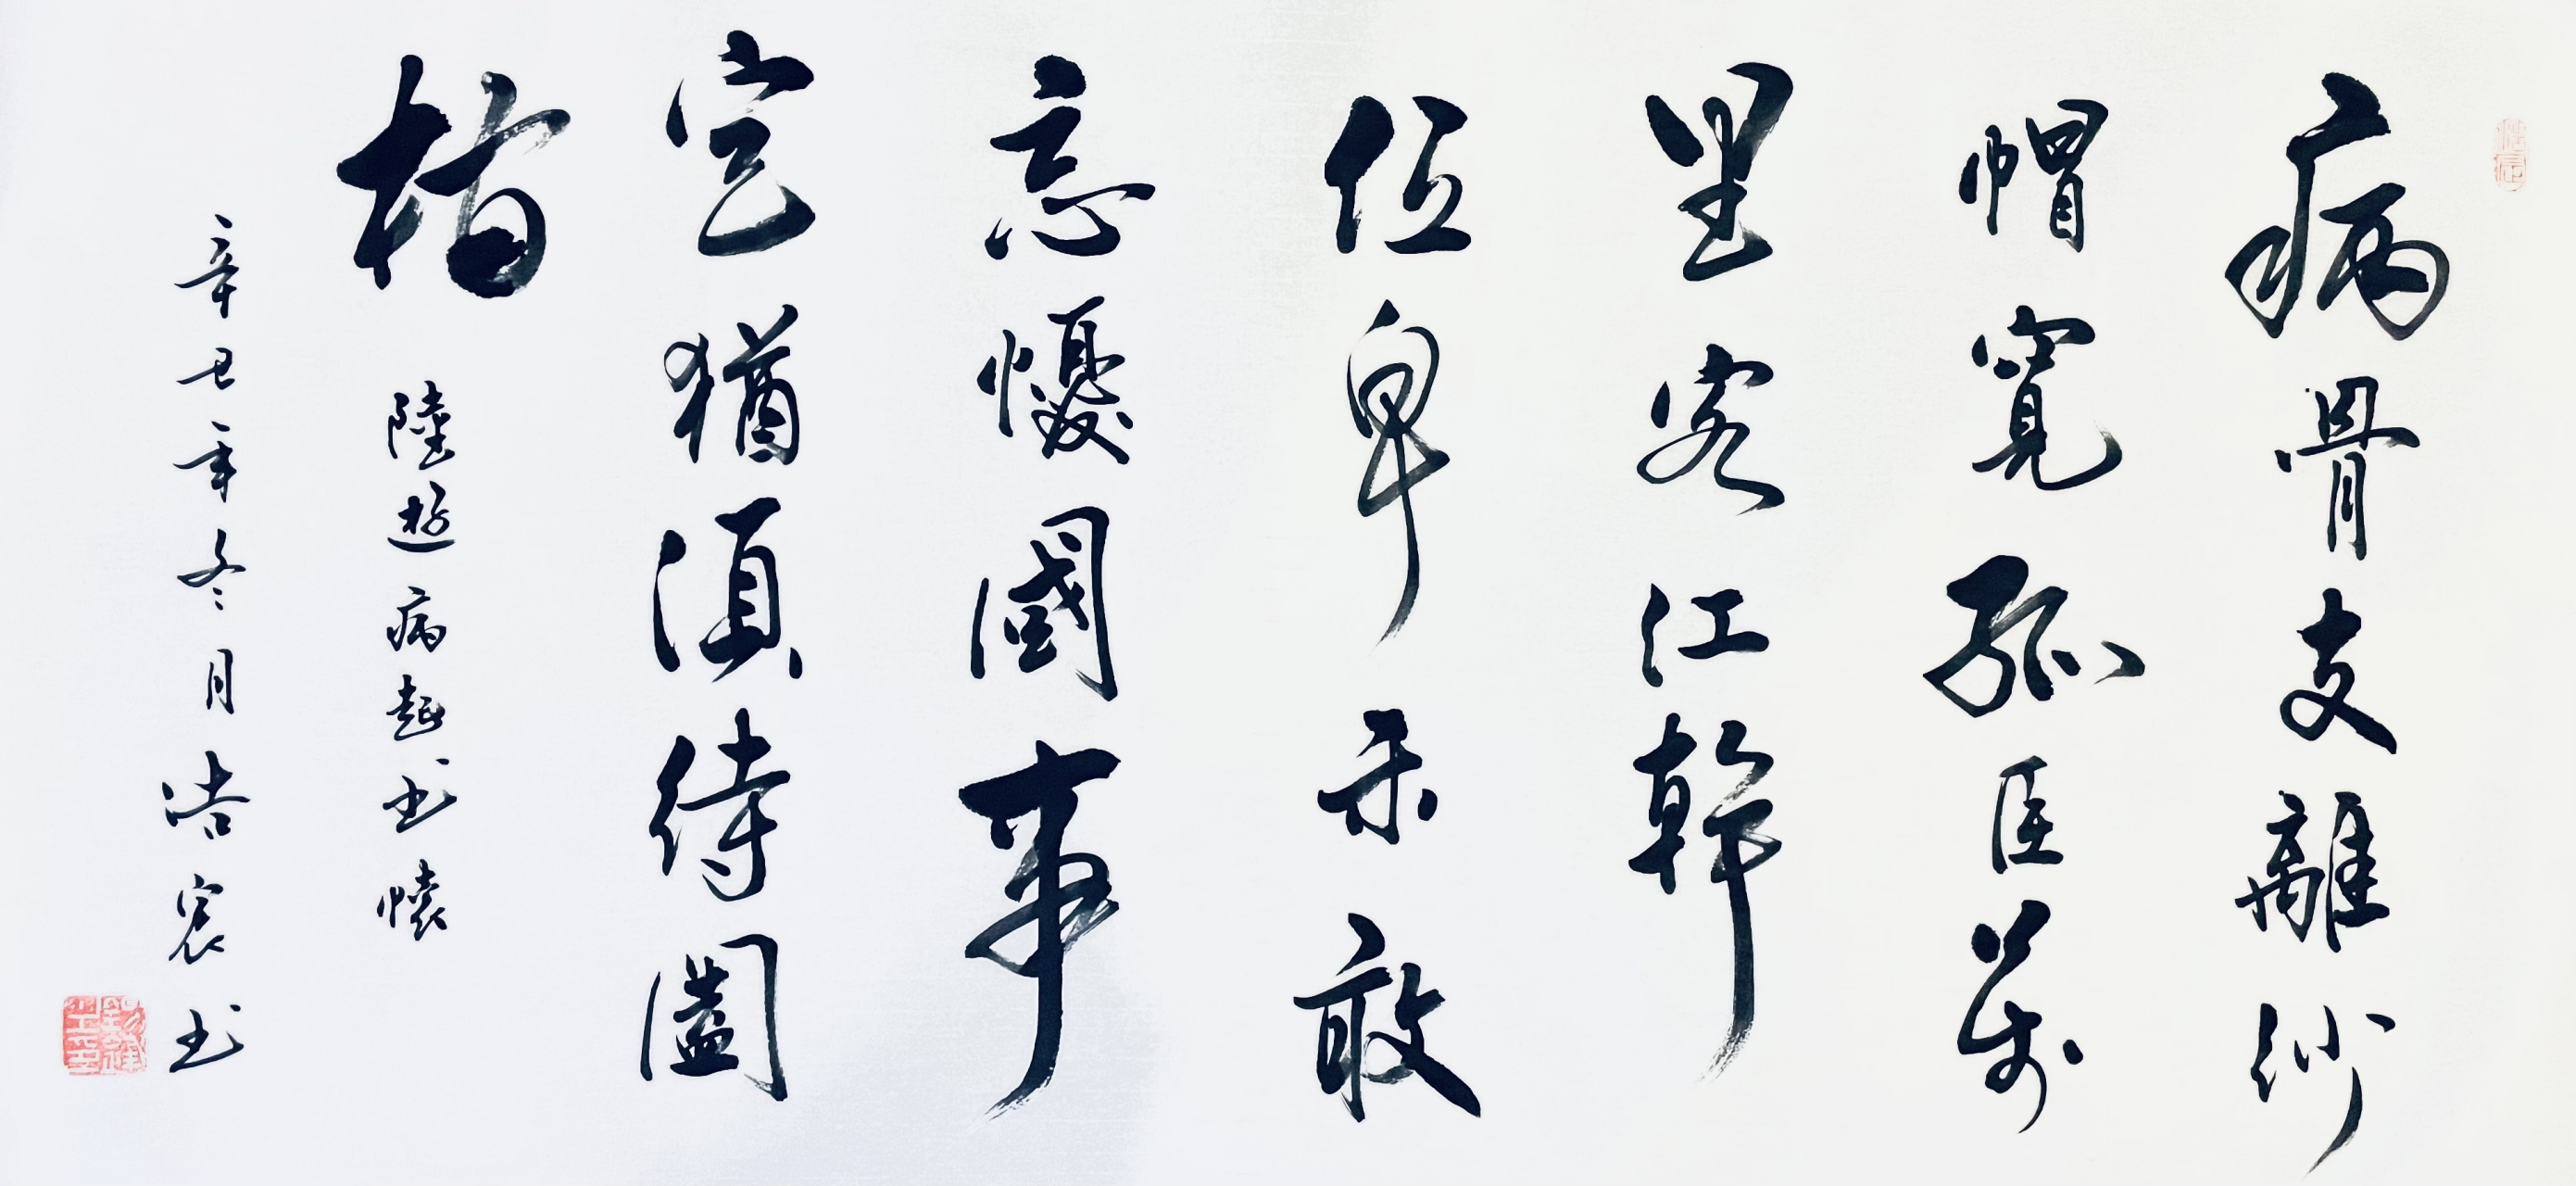 病骨支離紗
帽寬孤臣萬
里客江幹
位卑未敢
忘憂國事
定猶須待闔
棺
陸遊病起書懷
辛丑年冬月浩宸書